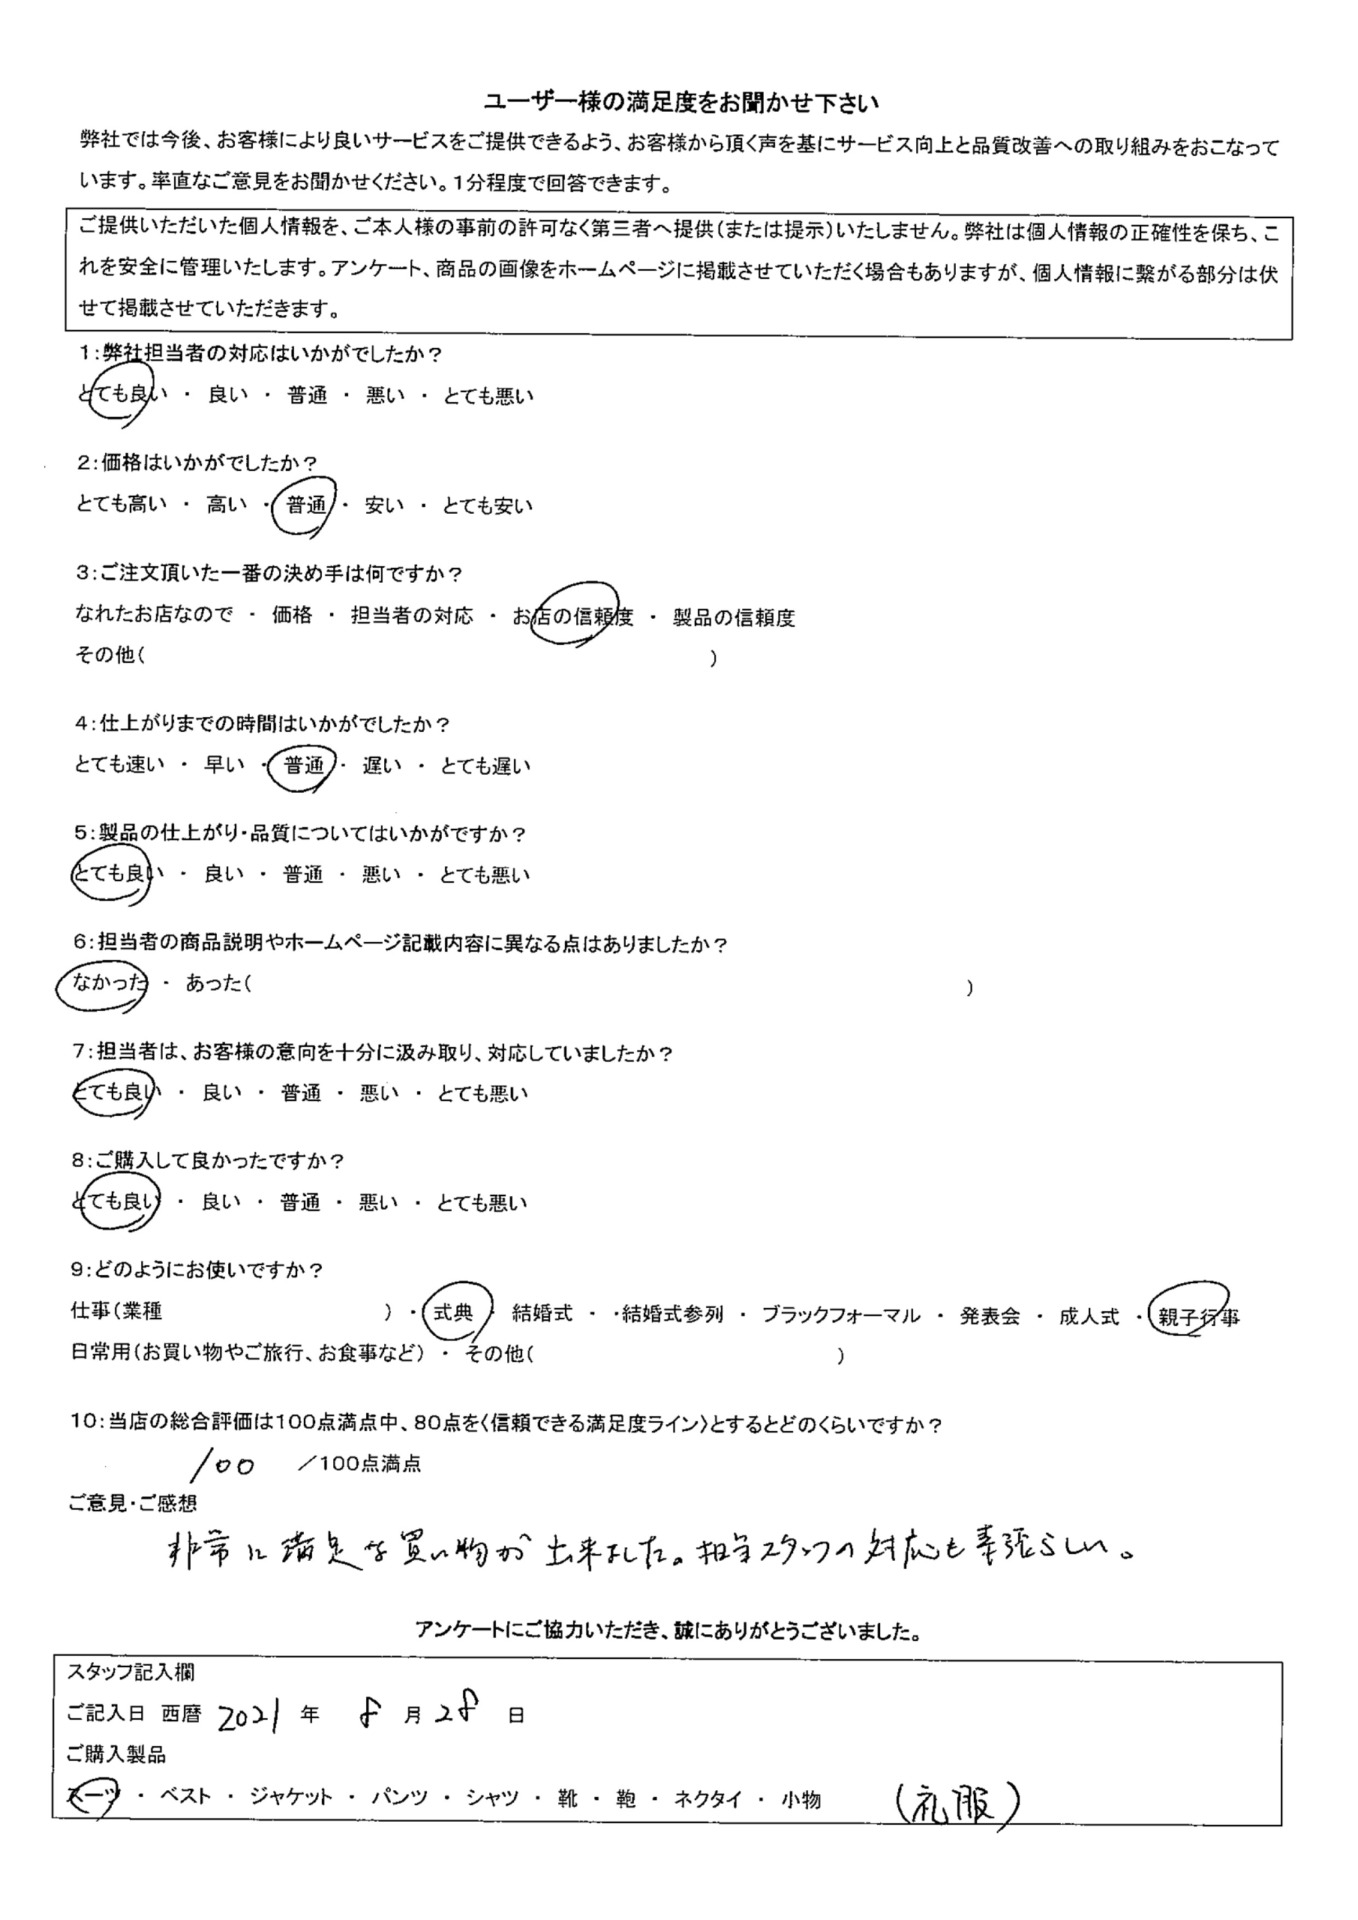 ユーザー様の満足度をお聞かせ下さい
弊社では今後、お客様により良いサービスをご提供できるよう、お客様から頂く声を基にサービス向上と品質改善への取り組みをおこなって
います。率直なご意見をお聞かせください。1分程度で回答できます。
ご提供いただいた個人情報を、ご本人様の事前の許可なく第三者へ提供(または提示)いたしません。弊社は個人情報の正確性を保ち、こ
れを安全に管理いたします。アンケート、商品の画像をホームページに掲載させていただく場合もありますが、個人情報に繋がる部分は伏
せて掲載させていただきます。
1:弊社担当者の対応はいかがでしたか?
とても良い ・ 良い ・ 普通 ・ 悪い ・ とても悪い
2:価格はいかがでしたか?
とても高い ・ 高い ・ 普通 ・ 安い ・ とても安い
3:ご注文頂いた一番の決め手は何ですか?
なれたお店なので ・ 価格 ・ 担当者の対応 ・ お店の信頼度 ・ 製品の信頼度
その他( )
4:仕上がりまでの時間はいかがでしたか?
とても速い ・ 早い ・ 普通 ・ 遅い ・ とても遅い
5:製品の仕上がり・品質についてはいかがですか?
とても良い ・ 良い ・ 普通 ・ 悪い ・ とても悪い
6:担当者の商品説明やホームページ記載内容に異なる点はありましたか?
なかった ・ あった( )
7:担当者は、お客様の意向を十分に汲み取り、対応していましたか?
とても良い ・ 良い ・ 普通 ・ 悪い ・ とても悪い
8:ご購入して良かったですか?
とても良い ・ 良い ・ 普通 ・ 悪い ・ とても悪い
9:どのようにお使いですか?
仕事(業種 ) ・ 式典 ・ 結婚式 ・ ・結婚式参列 ・ ブラックフォーマル ・ 発表会 ・ 成人式 ・ 親子行事
日常用(お買い物やご旅行、お食事など) ・ その他( )
10:当店の総合評価は100点満点中、80点を〈信頼できる満足度ライン〉とするとどのくらいですか?
100 /100点満点
ご意見・ご感想
非常に満足な買い物が出来ました。担当スタッフの対応も素張らしい。
アンケートにご協力いただき、誠にありがとうございました。
スタッフ記入欄
ご記入日 西暦 2021 年 8 月 28 日
ご購入製品
スーツ ・ ベスト ・ ジャケット ・ パンツ ・ シャツ ・ 靴 ・ 鞄 ・ ネクタイ ・ 小物 (礼服)